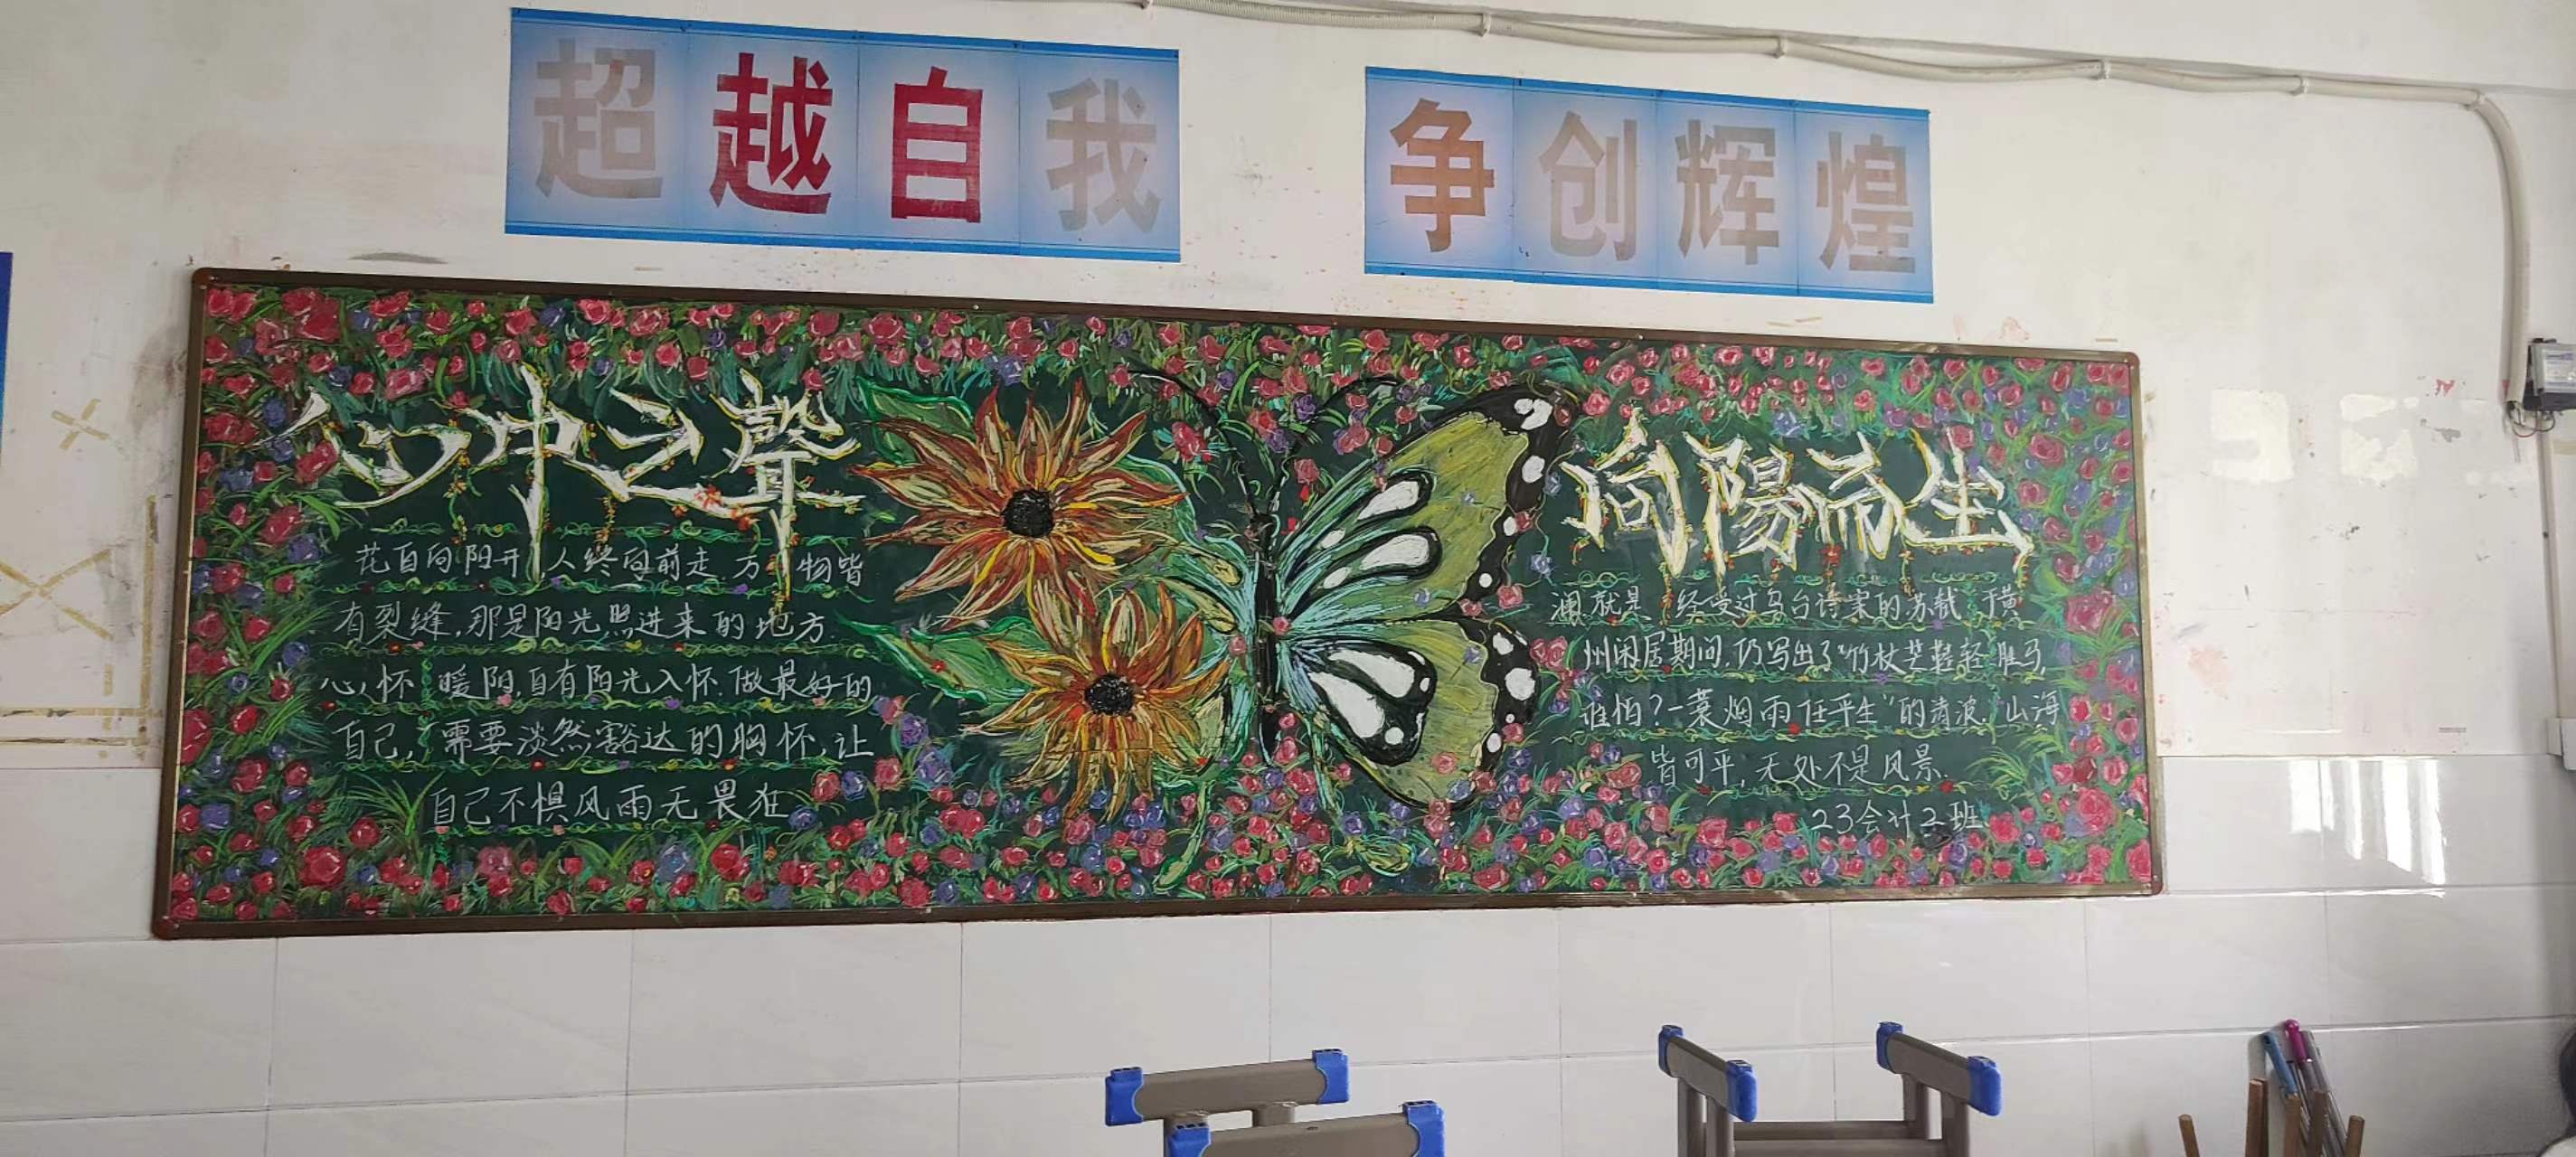 超越自我 争创辉煌
心中之聲
花自向阳开 人终向前走 万物皆
有裂缝,那是阳光照进来的地方.
心怀暖阳,自有阳光入怀.做最好的
自己,需要淡然豁达的胸怀,让
自己不惧风雨无畏
向陽而生
澜.就是 经受过乌台诗案的苏轼,于黄
州闲居期间,仍写出了“竹杖芒鞋轻胜马,
谁怕?一蓑烟雨任平生”的清波.山海
皆可平,无处不是风景.
23会计2班